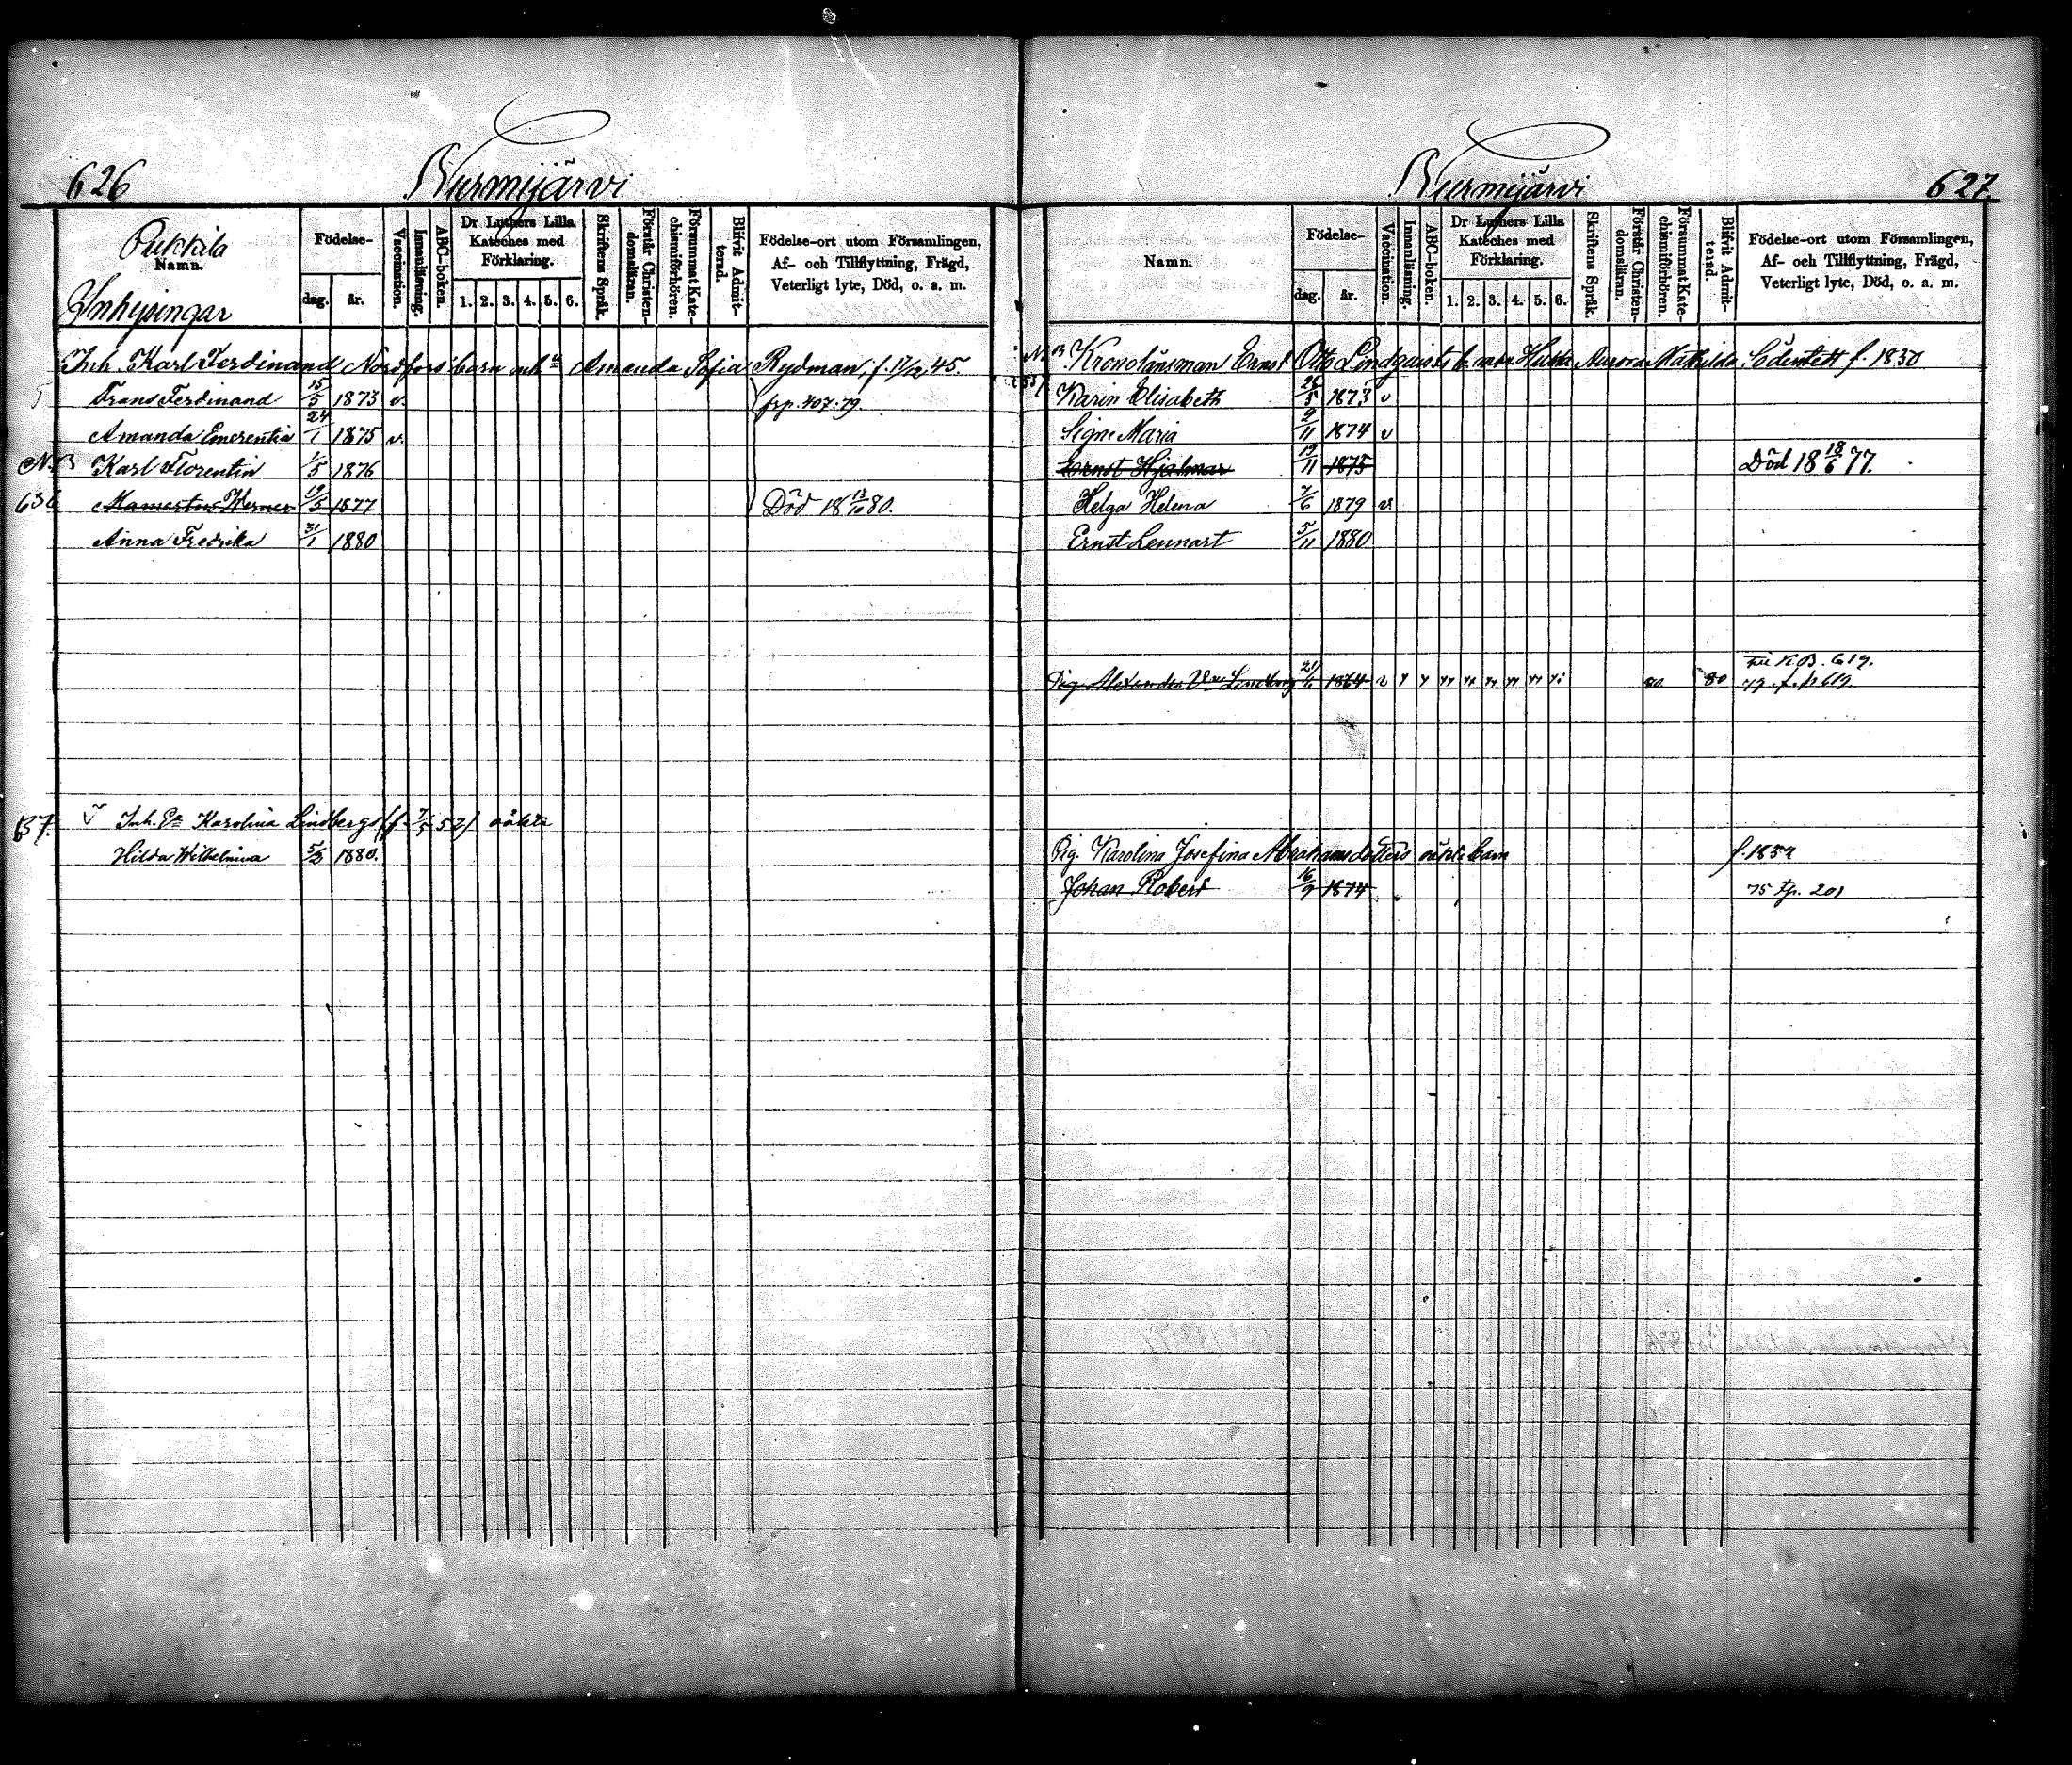 626
Nurmijärvi
Pukkila
Namn.
Inhysingar
Födelse-
dag.
år.
Vaccination.
Innanläsning.
ABC-boken.
Dr Luthers Lilla
Kateches med
Förklaring.
1. 2. 3. 4. 5. 6.
Skriftens Språk.
Förstår Christen-
domsläran.
Försummat Kate-
chismiförhören.
Blifvit Admit-
terad.
Födelse-ort utom Församlingen,
Af- och Tillflyttning, Frägd,
Veterligt lyte, Död, o. a. m.
Inh. Karl Ferdinand Nordfors' barn Amanda Sofia Rydman, f. 17/12 45.
Frans Ferdinand 15/5 1873 v. frp. 407:79.
Amanda Emerentia 24/1 1875 v.
N.B Karl Florentin 1/5 1876
636 Werner 1877 Död 18 13/10 80.
Anna Fredrika 31/1 1880
B7. v Inh. Karolina Lindbergs (f. 7/5 52) oäkta
Hilda Wilhelmina 5/3 1880.
Nurmijärvi
627.
Namn.
Födelse-
dag.
år.
Vaccination.
Innanläsning.
ABC-boken.
Dr Luthers Lilla
Kateches med
Förklaring.
1. 2. 3. 4. 5. 6.
Skriftens Språk.
Förstår Christen-
domsläran.
Försummat Kate-
chismiförhören.
Blifvit Admit-
terad.
Födelse-ort utom Församlingen,
Af- och Tillflyttning, Frägd,
Veterligt lyte, Död, o. a. m.
N.B Kronolänsman Ernst Otto Lindquists b. Aurora Mathilda f. 1850
Karin Elisabeth 26/5 1873 v
Signe Maria 9/11 1874 v
Ernst Hjalmar 19/11 1875 Död 18 18/6 77.
Helga Helena 7/6 1879 v
Ernst Lennart 5/11 1880
K.B. 619.
Pig. Alexandra Lindberg 1864 80 80 79 f. p 619.
Pig. Karolina Josefina Abrahamsdotters oäkta barn f. 1852
Johan Robert 16/9 1874 75 tp. 201